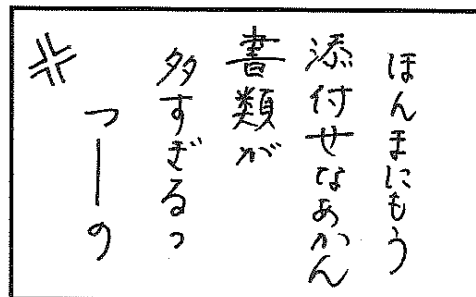 ほんまにもう
添付せなあかん
書類が
多すぎるっ
つーの